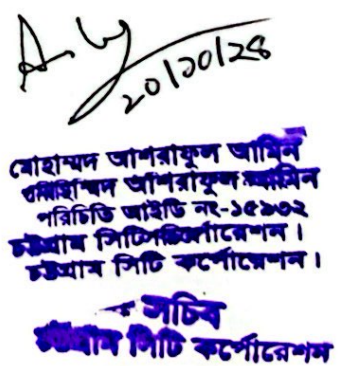 ২০/১০/২৪
মোহাম্মদ আশরাফুল আমিন
মোহাম্মদ আশরাফুল আমিন
পরিচিতি আইডি নং-১৫৯৩২
চট্টগ্রাম সিটি কর্পোরেশন।
চট্টগ্রাম সিটি কর্পোরেশন।
সচিব
চট্টগ্রাম সিটি কর্পোরেশন